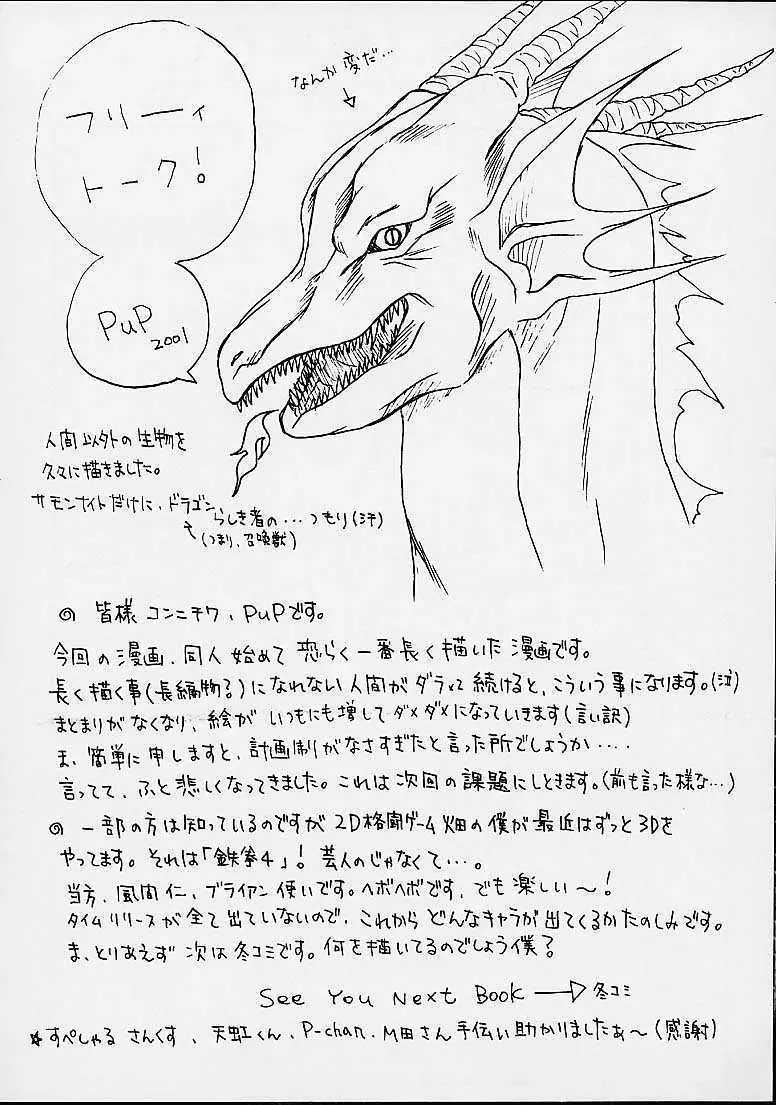 フリーィ
トーク！
PuP
2001
なんか変だ…
人間以外の生物を
久々に描きました。
サモンナイトだけに、ドラゴン
らしき者の…つもり(汗)
(つまり、召喚獣)
皆様コンニチワ、PuPです。
今回の漫画、同人始めて恐らく一番長く描いた漫画です。
長く描く事(長編物？)になれない人間がダラダラ続けると、こういう事になります。(泣)
まとまりがなくなり、絵がいつもにも増してダメダメになっていきます(言い訳)
ま、簡単に申しますと、計画制がなさすぎたと言った所でしょうか‥‥
言ってて、ふと悲しくなってきました。これは次回の課題にしときます。(前も言った様な…)
一部の方は知っているのですが2D格闘ゲーム畑の僕が最近はずっと3Dを
やってます。それは「鉄拳4」！芸人のじゃなくて…。
当方、風間仁、ブライアン使いです。ヘボヘボです、でも楽しい〜！
タイムリリースが全て出ていないので、これからどんなキャラが出てくるかたのしみです。
ま、とりあえず次は冬コミです。何を描いてるのでしょう僕？
See You Next Book → 冬コミ
☆すぺしゃるさんくす、天虹くん、P-chan、M田さん手伝い助かりましたぁ〜(感謝)